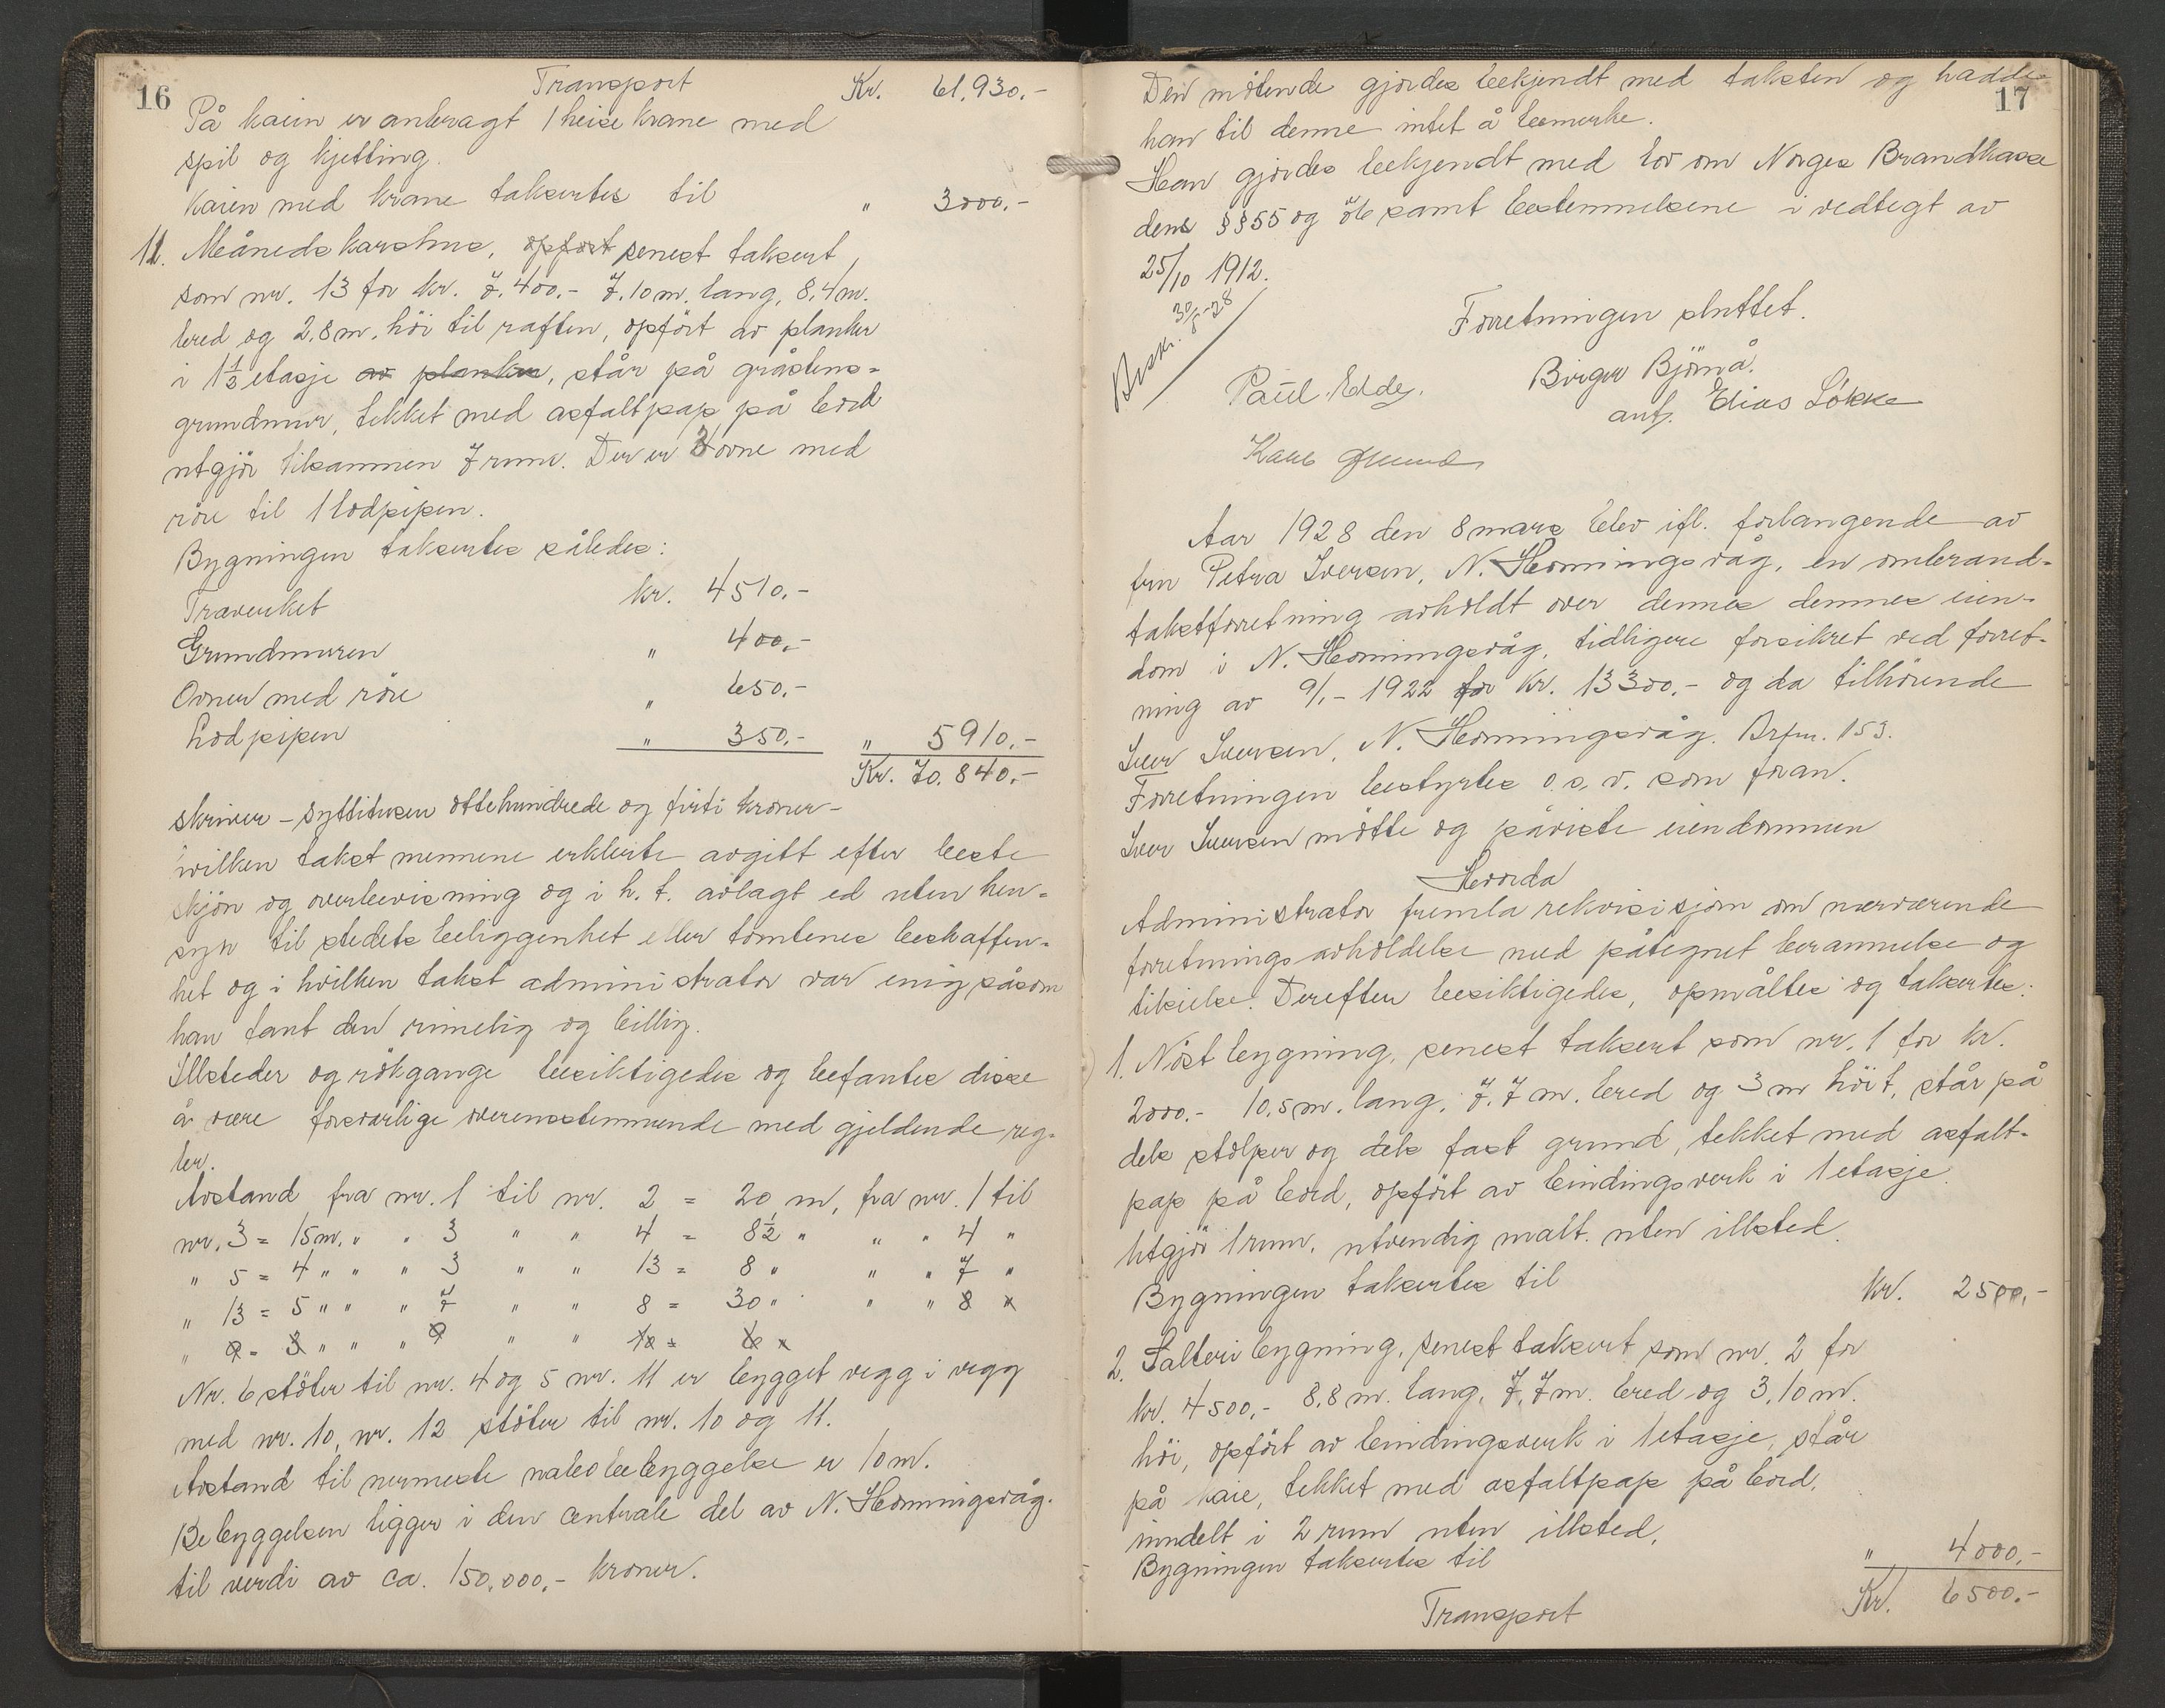 16
Transport Kr. 61.930.-
På kaien er anbragt 1 heisekrane med
spil og kjetting.
Kaien med krane takseres til " 3000.-
11. Månedskarshus, opført senest taksert,
som nr. 13 for kr. 7.400.- 7.10 m. lang, 8,4 m.
bred og 2,8 m. höi til raften, opfört av planker
i 1½ etasje av planker, står på gråstens-
grundmur, tekket med asfaltpap på bord
utgjör tilsammen 7 rum. Der er 3 ovne med
röre til 1 lodpipen.
Bygningen takseres således:
Træverket kr. 4510.-
Grundmuren " 400.-
Ovner med röre " 650.-
Lodpipen " 350.- " 5910.-
Kr. 70.840.-
skriver - syttitusen ottehundrede og firti kroner -
hvilken takst mennene erklærte avgitt efter beste
skjön og overbevisning og i h. t. avlagt ed uten hen-
syn til stedets beliggenhet eller tomtenes beskaffen-
het og i hvilken takst administrator var enig såsom
han fant den rimelig og billig.
Ildsteder og rökgange besiktigedes og befantes disse
å være forsvarlige overensstemmende med gjeldende reg-
ler.
Avstand fra nr. 1 til nr. 2 = 20 m, fra nr. 1 til
nr. 3 = 15 m. " " 3 " " 4 = 8½ " " " 4 "
" 5 = 4 " " " 3 " " 13 = 8 " " " 7 "
" 13 = 5 " " " 7 " " 8 = 30 " " " 8 "
" 9 = 3 " " " 9 " " 10 = 6 "
Nr. 6 stöter til nr. 4 og 5 nr. 11 er bygget vegg i vegg
med nr. 10, nr. 12 stöter til nr. 10 og 11.
Avstand til nermeste nabobebyggelse er 10 m.
Bebyggelsen ligger i den centrale del av N. Honningsvåg.
til verdi av ca. 150.000,- kroner.
17
Den mötende gjordes bekjendt med taksten og hadde
han til denne intet å bemerke.
Han gjordes bekjendt med lov om Norges Brandkasse
dens §§ 55 og 56 samt bestemmelsene i vedtegt av
25/10 1912.
Forretningen sluttet.
Beskr. 30/5-28
Birger Björnå.
Paul Eldby.
Elias Løkke
Aar 1928 den 8 mars blev ifl. forlangende av
fru Petra Iversen, N. Honningsvåg, en ombrand-
takstforretning avholdt over dennes dennes eien-
dom i N. Honningsvåg, tidligere forsikret ved forret-
ning av 9/1- 1922 for kr. 13300.- og da tilhörende
Iver Iversen, N. Honningsvåg. Brfnr. 153.
Forretningen bestyrtes o. s. v. som foran.
Iver Iversen mötte og påviste eiendommen
Hvorda
Administrator fremla rekvisisjon om nærværende
forretnings avholdelse med påtegnet berammelse og
tilsielse. Derefter besiktigedes, opmåltes og takseres:
1. Nöstbygning, senest taksert som nr. 1 for kr.
2000.- 10.5 m. lang, 7.7 m. bred og 3 m höit, står på
dels stolper og dels fast grund, tekket med asfalt-
pap på bord, opfört av bindingsverk i 1 etasje.
Utgjör 1 rum, utvendig malt. uten ildsted.
Bygningen takseres til kr. 2500.-
2. Salteribygning, senest taksert som nr. 2 for
kr. 4500.- 8.8 m. lang, 7.7 m. bred og 3.10 m.
höi, opfört av bindingsverk i 1 etasje, står
på kaie, tekket med asfaltpap på bord,
inndelt i 2 rum uten ildsted,
Bygningen takseres til " 4000.-
Transport Kr. 6500.-